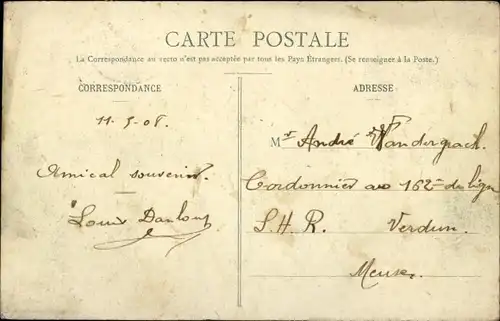 CARTE POSTALE
La Correspondance au recto n'est pas acceptée par tous les Pays Étrangers. (Se renseigner à la Poste.)
CORRESPONDANCE
11-5-08.
Amical souvenir.
Louis
ADRESSE
Mr André
Cordonnier au 162e de ligne
S.H.R. Verdun.
Meuse.